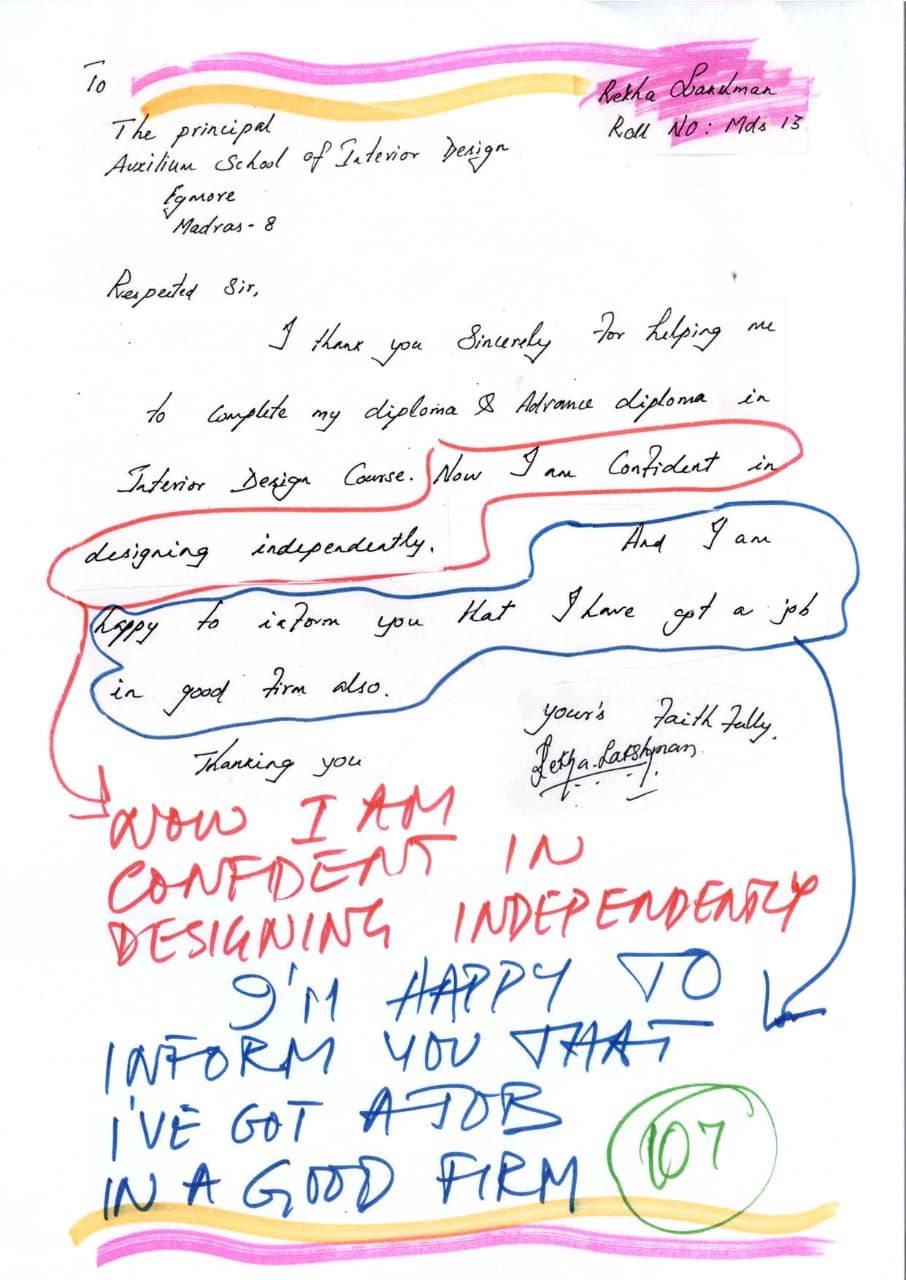 To
Rekha Laxman
Roll No: Mds 13
The principal
Auxilium School of Interior Design
Egmore
Madras-8
Respected Sir,
I thank you Sincerely For helping me
to complete my diploma & Advance diploma in
Interior Design Course. Now I am Confident in
designing independently. And I am
happy to inform you that I have got a job
in good firm also.
your's Faith Fully,
Thanking you
Rekha.Lakshman.
NOW I AM
CONFIDENT IN
DESIGNING INDEPENDENTLY
I'M HAPPY TO
INFORM YOU THAT
I'VE GOT A JOB
IN A GOOD FIRM
107